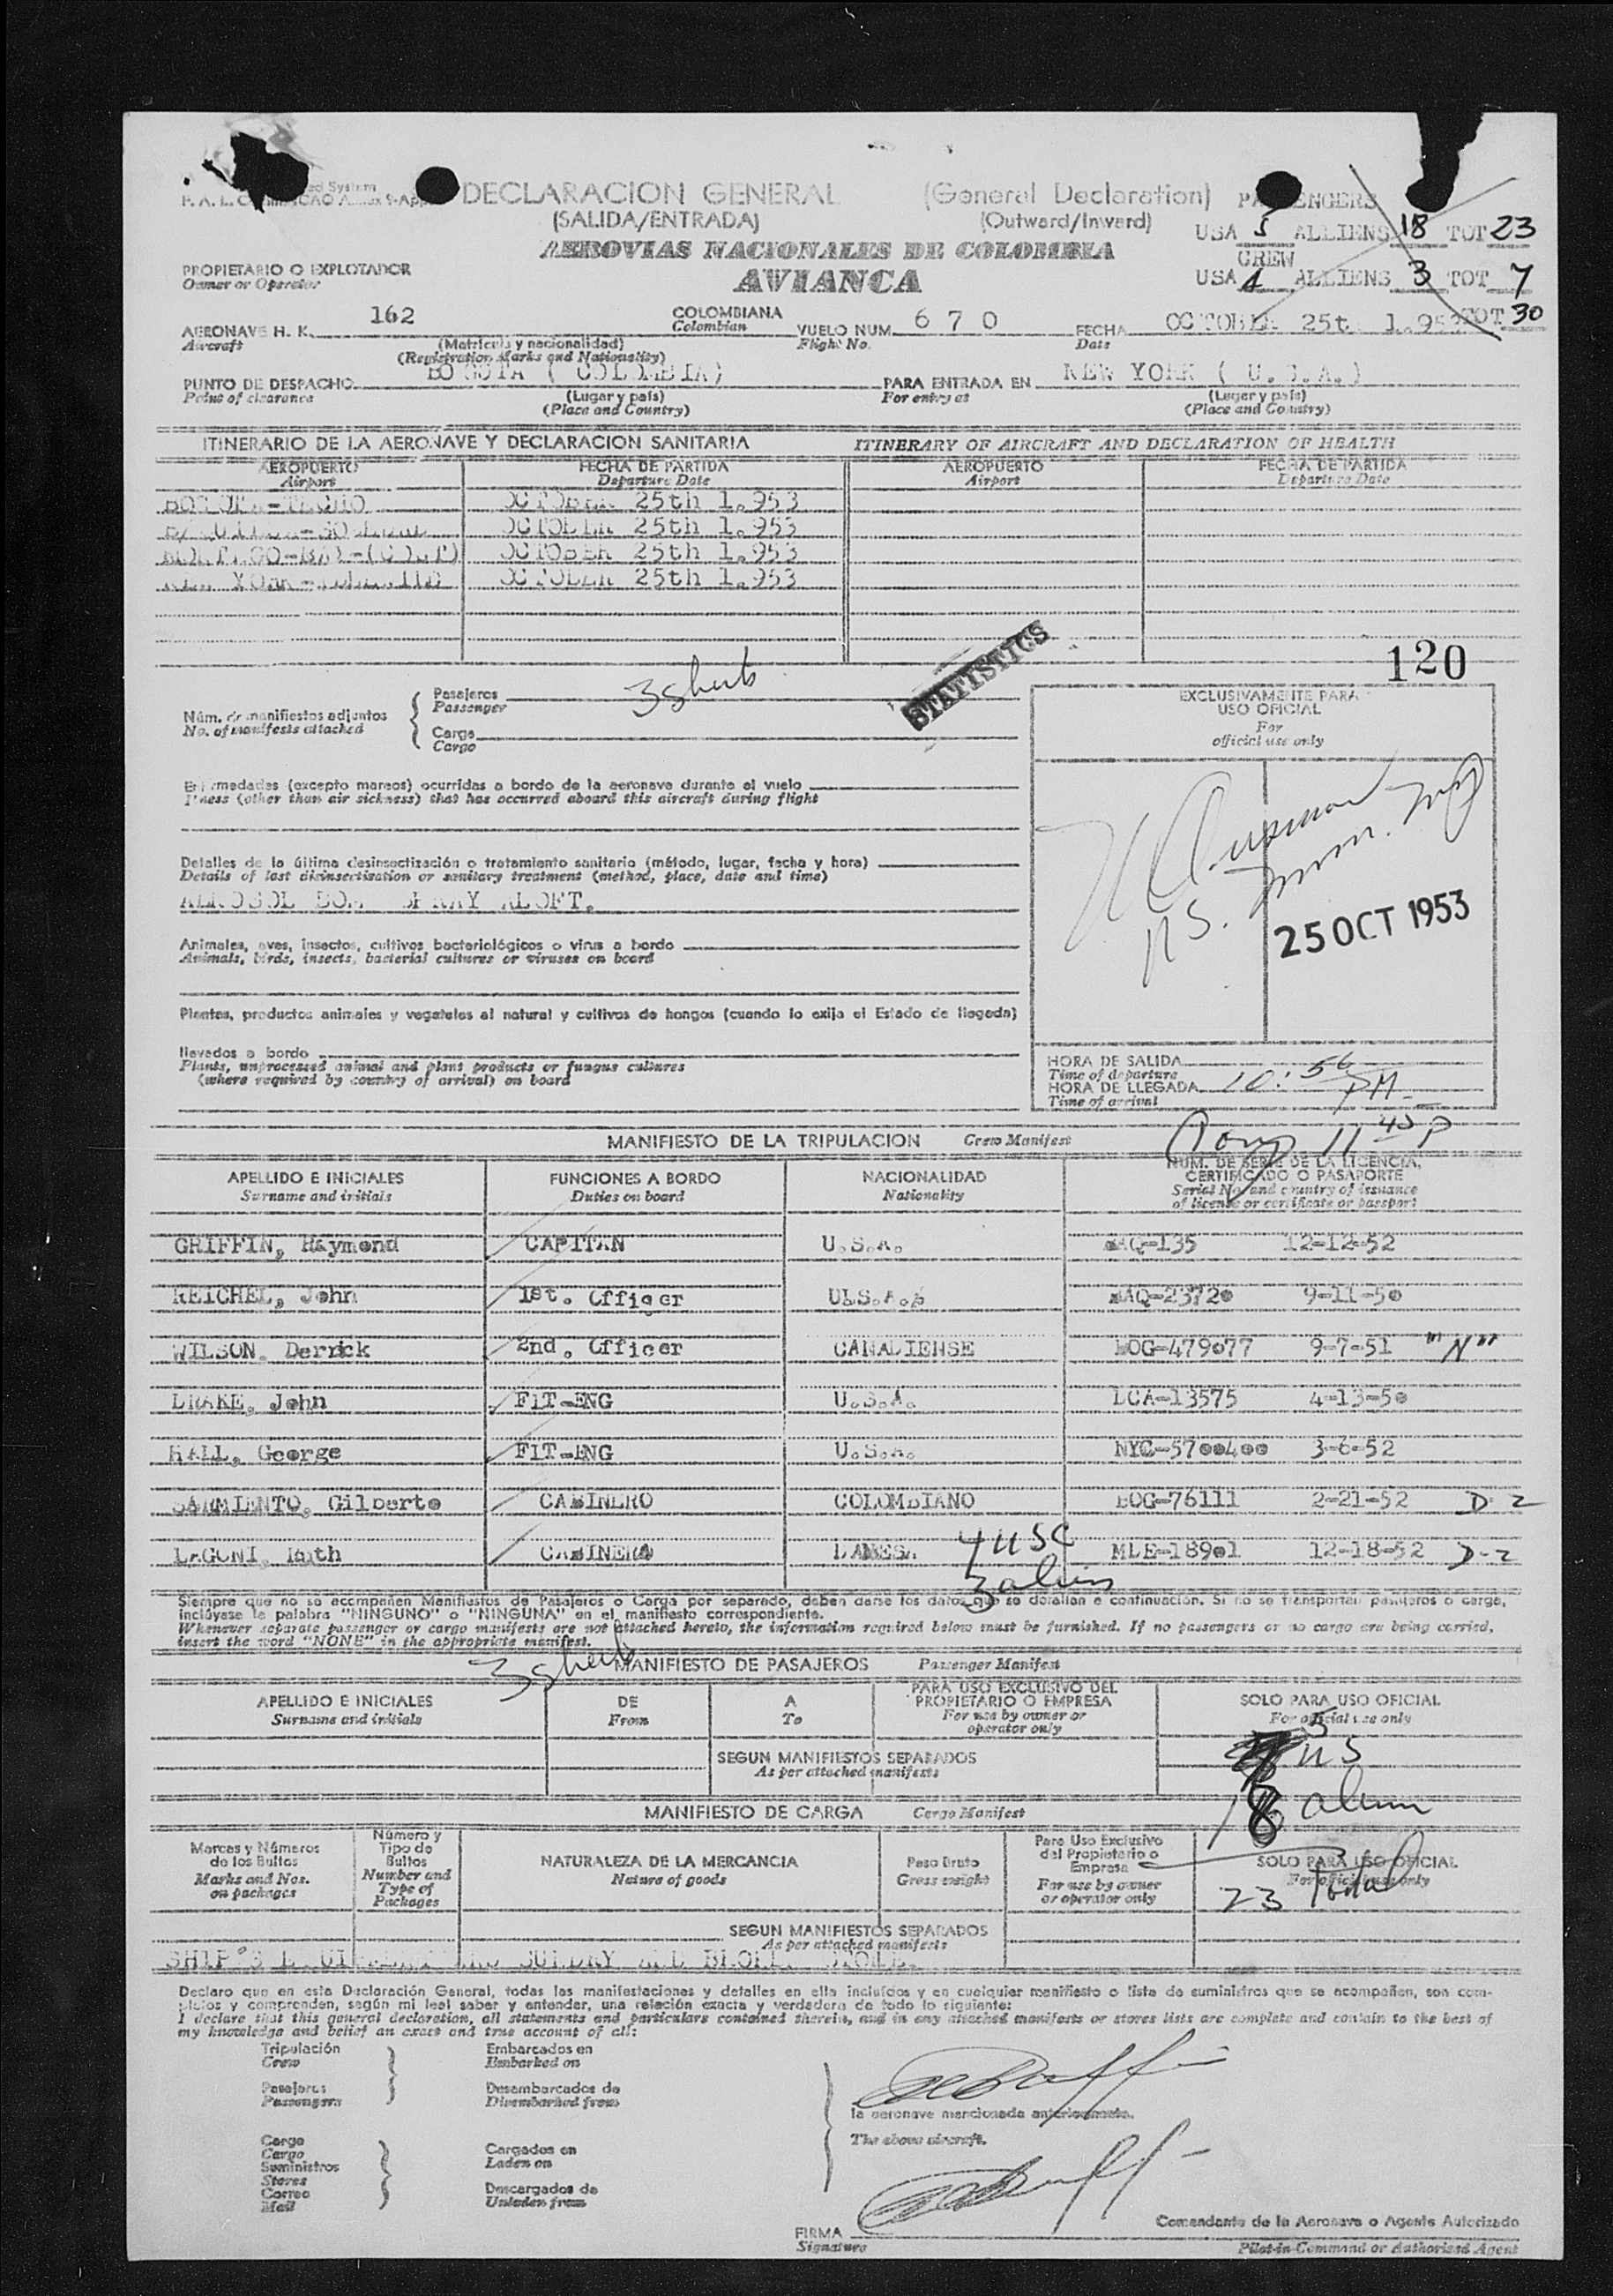 DECLARACION GENERAL (General Declaration)
(SALIDA/ENTRADA) (Outward/Inward)
AEROVIAS NACIONALES DE COLOMBIA
AVIANCA
USA 5 ALLIENS 18 TOT 23
CREW
USA 4 ALLIENS 3 TOT 7
TOT 30
PROPIETARIO O EXPLOTADOR
Owner or Operator
AERONAVE H. K. 162 COLOMBIANA VUELO NUM. 670 FECHA OCTOBER 25t
Aircraft Colombian Flight No. Date
(Matricula y nacionalidad)
(Registration Marks and Nationality)
PUNTO DE DESPACHO BOGOTA ( COLOMBIA) PARA ENTRADA EN NEW YORK ( U.S.A.)
Point of clearance (Lugar y país) For entry at (Lugar y país)
(Place and Country) (Place and Country)
ITINERARIO DE LA AERONAVE Y DECLARACION SANITARIA ITINERARY OF AIRCRAFT AND DECLARATION OF HEALTH
AEROPUERTO FECHA DE PARTIDA AEROPUERTO FECHA DE PARTIDA
Airport Departure Date Airport Departure Date
OCTOBER 25th 1.953
OCTOBER 25th 1.953
OCTOBER 25th 1.953
NEW YORK OCTOBER 25th 1.953
120
STATISTICS
Núm. de manifiestos adjuntos
No. of manifests attached
Pasajeros
Passenger
Carga
Cargo
EXCLUSIVAMENTE PARA
USO OFICIAL
For
official use only
Enfermedades (excepto mareos) ocurridas a bordo de la aeronave durante el vuelo
Illness (other than air sickness) that has occurred aboard this aircraft during flight
Detalles de la última desinsectización o tratamiento sanitario (método, lugar, fecha y hora)
Details of last disinsectisation or sanitary treatment (method, place, date and time)
AEROSOL BOM SPRAY ALOFT.
25 OCT 1953
Animales, aves, insectos, cultivos bacteriológicos o virus a bordo
Animals, birds, insects, bacterial cultures or viruses on board
Plantas, productos animales y vegetales al natural y cultivos de hongos (cuando lo exija el Estado de llegada)
llevados a bordo
Plants, unprocessed animal and plant products or fungus cultures
(where required by country of arrival) on board
HORA DE SALIDA
Time of departure
HORA DE LLEGADA 10:56 PM
Time of arrival
11 45 P
MANIFIESTO DE LA TRIPULACION Crew Manifest
APELLIDO E INICIALES FUNCIONES A BORDO NACIONALIDAD NUM. DE SERIE DE LA LICENCIA,
CERTIFICADO O PASAPORTE
Surname and initials Duties on board Nationality Serial No. and country of issuance
of license or certificate or passport
GRIFFIN, Raymond CAPITAN U.S.A. 12-12-52
REICHEL, John 1st. Officer 9-11-50
WILSON, Derrick 2nd. Officer CANADIENSE BOG-479077 9-7-51 "N"
DRAKE, John FIT-ENG U.S.A. DCA-13575 4-13-50
HALL, George FIT-ENG U.S.A. NYC-5700400 3-6-52
SARMIENTO, Gilberto CABINERO COLOMBIANO BOG-76111 2-21-52 D-2
LAGONI, Ruth CABINERA DANESA MLE-18901 12-18-52 D-2
4 USC
3 alien
Siempre que no se acompañen Manifiestos de Pasajeros o Carga por separado, deben darse los datos que se detallan a continuación. Si no se transportan pasajeros o carga,
inclúyase la palabra "NINGUNO" o "NINGUNA" en el manifiesto correspondiente.
Whenever separate passenger or cargo manifests are not attached hereto, the information required below must be furnished. If no passengers or no cargo are being carried,
insert the word "NONE" in the appropriate manifest.
MANIFIESTO DE PASAJEROS Passenger Manifest
APELLIDO E INICIALES DE A PARA USO EXCLUSIVO DEL
PROPIETARIO O EMPRESA SOLO PARA USO OFICIAL
Surname and initials From To For use by owner or
operator only For official use only
5
US
SEGUN MANIFIESTOS SEPARADOS
As per attached manifests
18 alien
MANIFIESTO DE CARGA Cargo Manifest
Marcas y Números
de los Bultos
Marks and Nos.
on packages
Número y
Tipo de
Bultos
Number and
Type of
Packages
NATURALEZA DE LA MERCANCIA
Nature of goods
Peso Bruto
Gross weight
Para Uso Exclusivo
del Propietario o
Empresa
For use by owner
or operator only
SOLO PARA USO OFICIAL
For official use only
23 total
SEGUN MANIFIESTOS SEPARADOS
As per attached manifests
SHIP'S SUNDRY AND
Declaro que en esta Declaración General, todas las manifestaciones y detalles en ella incluídos y en cualquier manifiesto o lista de suministros que se acompañen, son com-
pletos y comprenden, según mi leal saber y entender, una relación exacta y verdadera de todo lo siguiente:
I declare that this general declaration, all statements and particulars contained therein, and in any attached manifests or stores lists are complete and contain to the best of
my knowledge and belief an exact and true account of all:
Tripulación Embarcados en
Crew Embarked on
Pasajeros Desembarcados de
Passengers Disembarked from
la aeronave mencionada anteriormente.
The above aircraft.
Carga
Cargo Cargados en
Suministros Laden on
Stores
Correo Descargados de
Mail Unladen from
FIRMA
Signature
Comandante de la Aeronave o Agente Autorizado
Pilot-in-Command or Authorised Agent